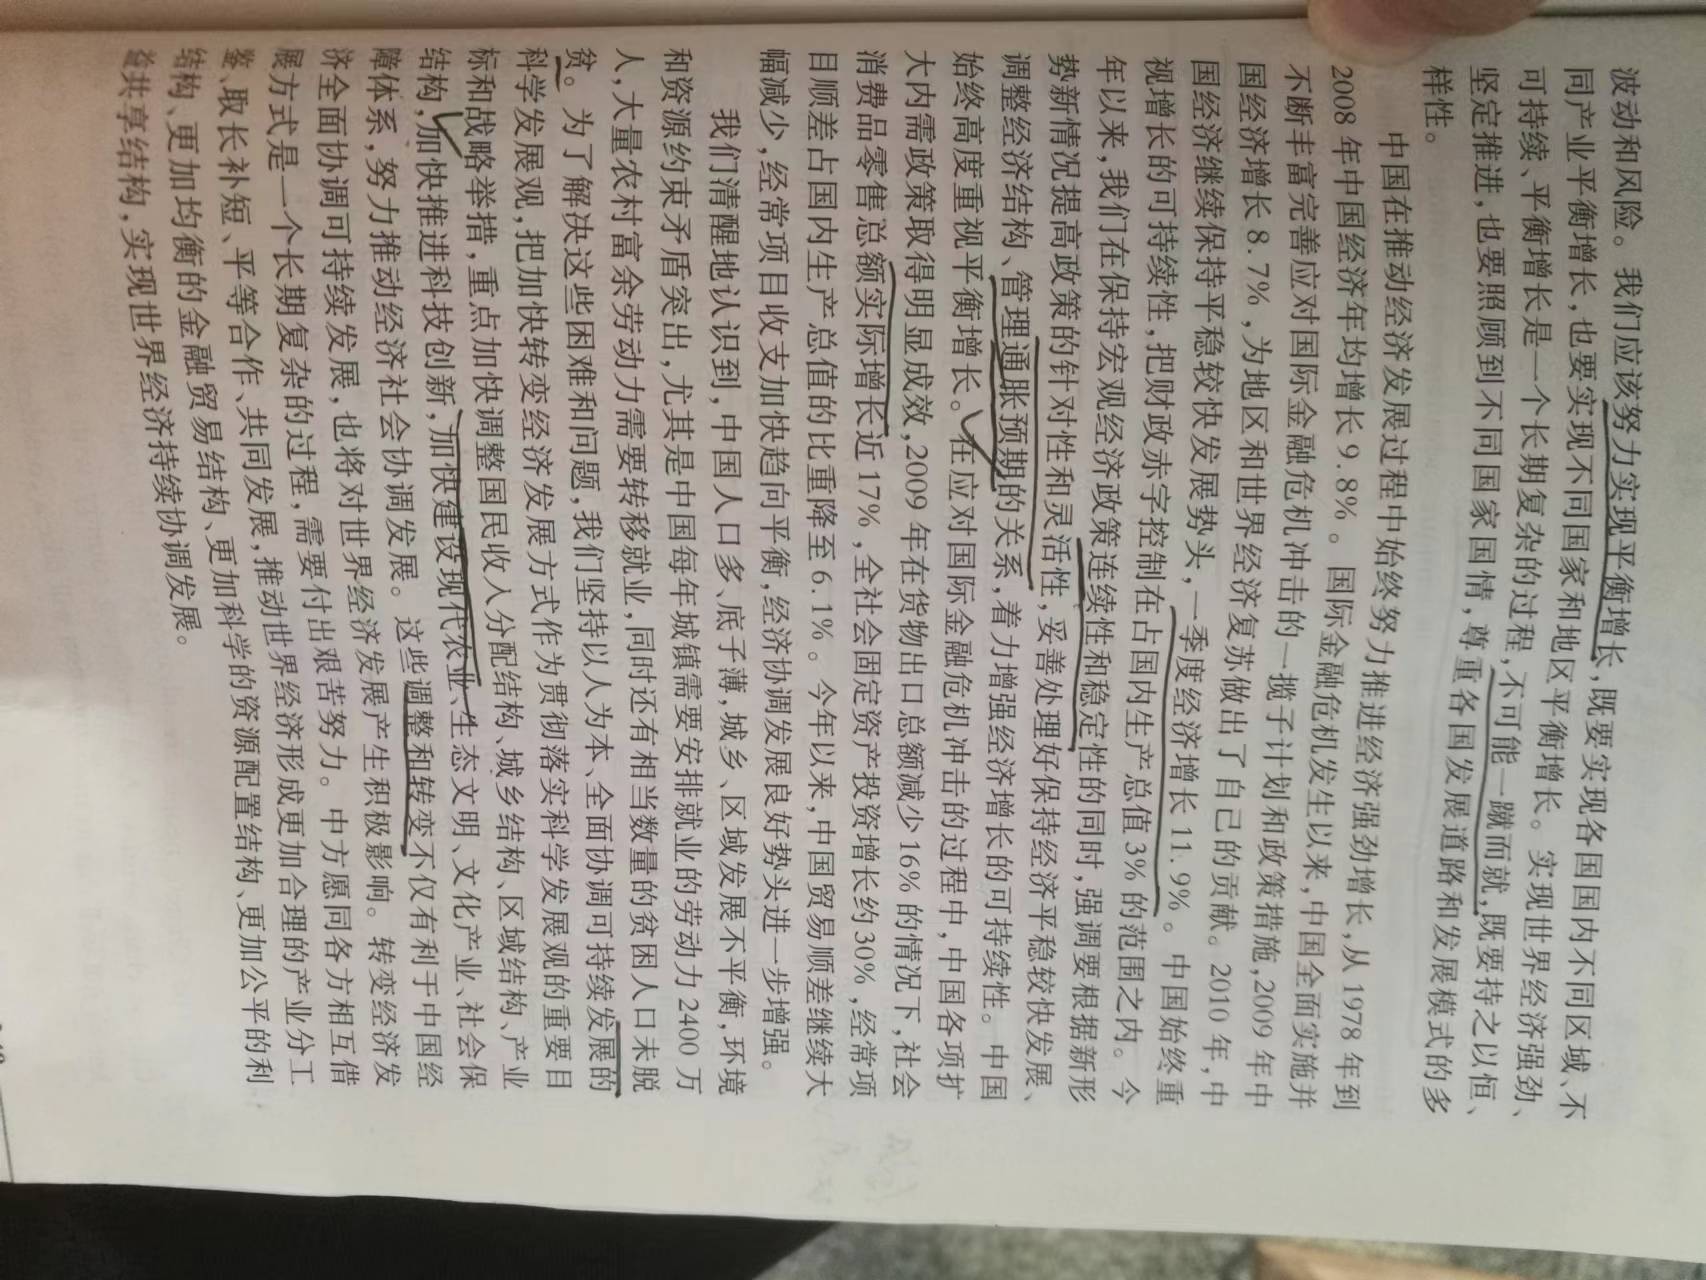 波动和风险。我们应该努力实现平衡增长,既要实现各国国内不同区域、不
同产业平衡增长,也要实现不同国家和地区平衡增长。实现世界经济强劲、
可持续、平衡增长是一个长期复杂的过程,不可能一蹴而就,既要持之以恒、
坚定推进,也要照顾到不同国家国情,尊重各国发展道路和发展模式的多
样性。
中国在推动经济发展过程中始终努力推进经济强劲增长,从1978年到
2008年中国经济年均增长9.8%。国际金融危机发生以来,中国全面实施并
不断丰富完善应对国际金融危机冲击的一揽子计划和政策措施,2009年中
国经济增长8.7%,为地区和世界经济复苏做出了自己的贡献。2010年,中
国经济继续保持平稳较快发展势头,一季度经济增长11.9%。中国始终重
视增长的可持续性,把财政赤字控制在占国内生产总值3%的范围之内。今
年以来,我们在保持宏观经济政策连续性和稳定性的同时,强调要根据新形
势新情况提高政策的针对性和灵活性,妥善处理好保持经济平稳较快发展、
调整经济结构、管理通胀预期的关系,着力增强经济增长的可持续性。中国
始终高度重视平衡增长。在应对国际金融危机冲击的过程中,中国各项扩
大内需政策取得明显成效,2009年在货物出口总额减少16%的情况下,社会
消费品零售总额实际增长近17%,全社会固定资产投资增长约30%,经常项
目顺差占国内生产总值的比重降至6.1%。今年以来,中国贸易顺差继续大
幅减少,经常项目收支加快趋向平衡,经济协调发展良好势头进一步增强。
我们清醒地认识到,中国人口多、底子薄,城乡、区域发展不平衡,环境
和资源约束矛盾突出,尤其是中国每年城镇需要安排就业的劳动力2400万
人,大量农村富余劳动力需要转移就业,同时还有相当数量的贫困人口未脱
贫。为了解决这些困难和问题,我们坚持以人为本、全面协调可持续发展的
科学发展观,把加快转变经济发展方式作为贯彻落实科学发展观的重要目
标和战略举措,重点加快调整国民收入分配结构、城乡结构、区域结构、产业
结构,加快推进科技创新,加快建设现代农业、生态文明、文化产业、社会保
障体系,努力推动经济社会协调发展。这些调整和转变不仅有利于中国经
济全面协调可持续发展,也将对世界经济发展产生积极影响。转变经济发
展方式是一个长期复杂的过程,需要付出艰苦努力。中方愿同各方相互借
鉴、取长补短、平等合作、共同发展,推动世界经济形成更加合理的产业分工
结构、更加均衡的金融贸易结构、更加科学的资源配置结构、更加公平的利
益共享结构,实现世界经济持续协调发展。